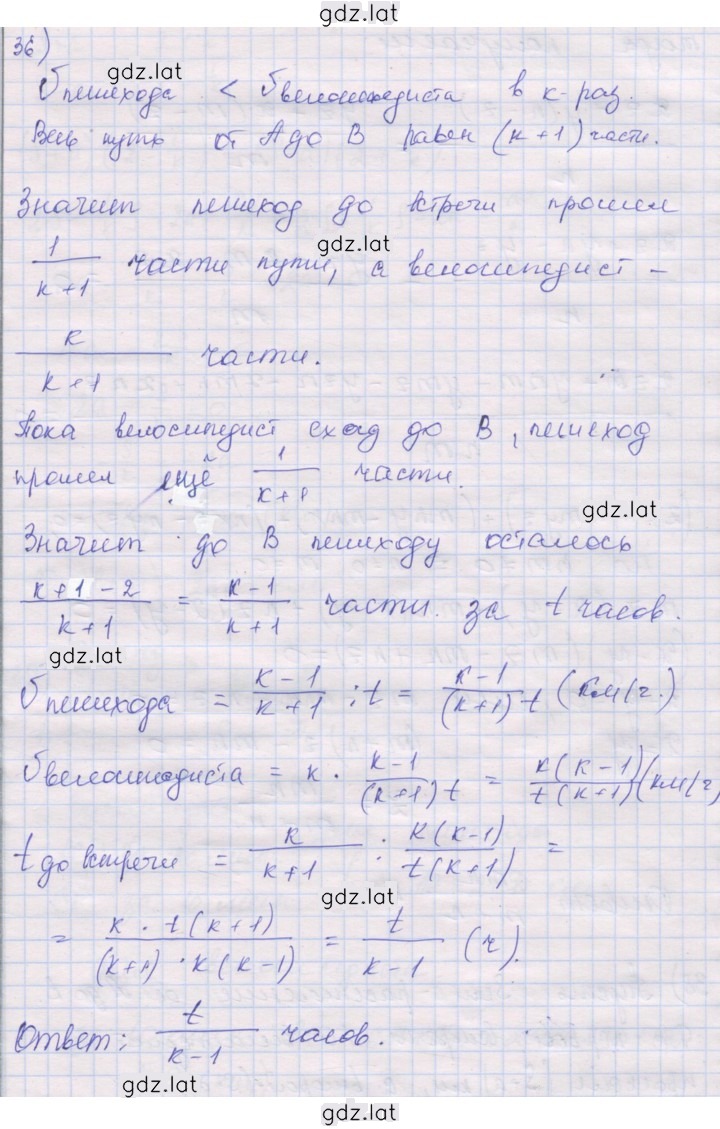 gdz.lat
36)
gdz.lat
υ пешехода < υ велосипедиста в к-раз.
Весь путь от A до B равен (к+1) части.
Значит пешеход до встречи прошел
gdz.lat
1/(к+1) части пути, а велосипедист –
к/(к+1) части.
Пока велосипедист ехад до B, пешеход
прошел ещё 1/(к+1) части.
gdz.lat
Значит до B пешеходу осталось
(к+1-2)/(к+1) = (к-1)/(к+1) части за t часов.
gdz.lat
υ пешехода = (к-1)/(к+1) : t = (к-1)/((к+1)t) (км/ч.)
υ велосипедиста = к · (к-1)/((к+1)t) = к(к-1)/(t(к+1)) (км/ч)
t до встречи = к/(к+1) : к(к-1)/(t(к+1)) =
gdz.lat
= (к · t(к+1))/((к+1) · к(к-1)) = t/(к-1) (ч).
Ответ: t/(к-1) часов.
gdz.lat
gdz.lat